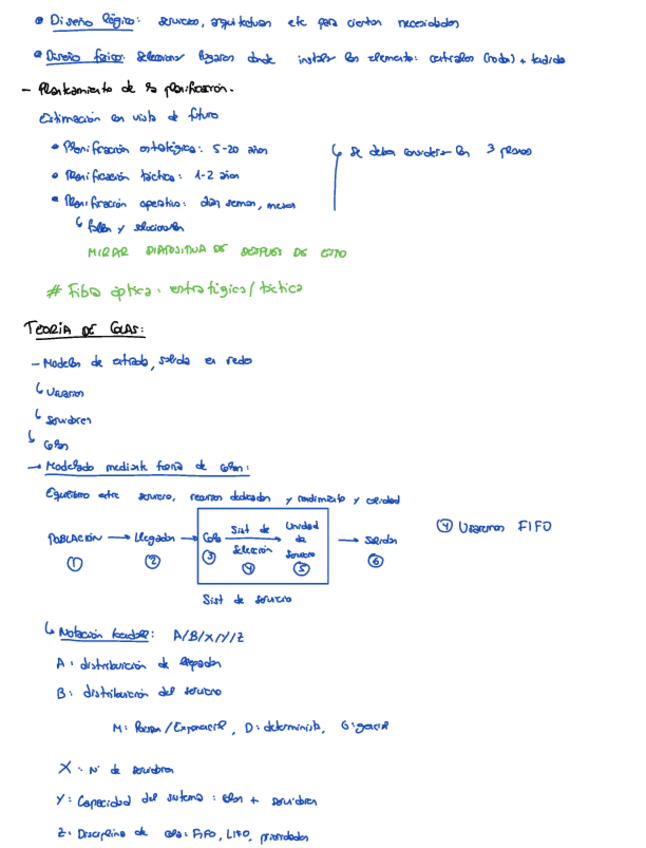 • Diseño lógico: servicios, arquitectura etc para ciertas necesidades
• Diseño físico: Seleccionar lugares donde instalar los elementos: centrales (nodos) + tendido
- Planteamiento de la planificación.
Estimación en vista de futuro
• Planificación estratégica: 5-20 años
↳ se deben considerar los 3 planos
• Planificación táctica: 1-2 años
• Planificación operativa: días semanas, meses
↳ fallos y solucionarlos
MIRAR DIAPOSITIVA DE DESPUES DE ESTO
# Fibra óptica: estratégica/táctica
TEORÍA DE COLAS:
- Modelos de entrada, salida en redes
↳ Usuarios
↳ Servidores
↳ Colas
→ Modelado mediante teoría de colas:
Equilibrio entre servicio, recursos dedicados y rendimiento y calidad
POBLACIÓN → Llegadas → Cola Sist de Selección → Unidad de Servicio → Salidas
① ② ③ ④ ⑤ ⑥
④ Usaremos FIFO
Sist de servicio
↳ Notación kendall: A/B/X/Y/Z
A: distribución de llegadas
B: distribución del servicio
M: Poisson/Exponencial, D: determinista, G: general
X: Nº de servidores
Y: Capacidad del sistema: colas + servidores
Z: Disciplina de cola: FIFO, LIFO, prioridades